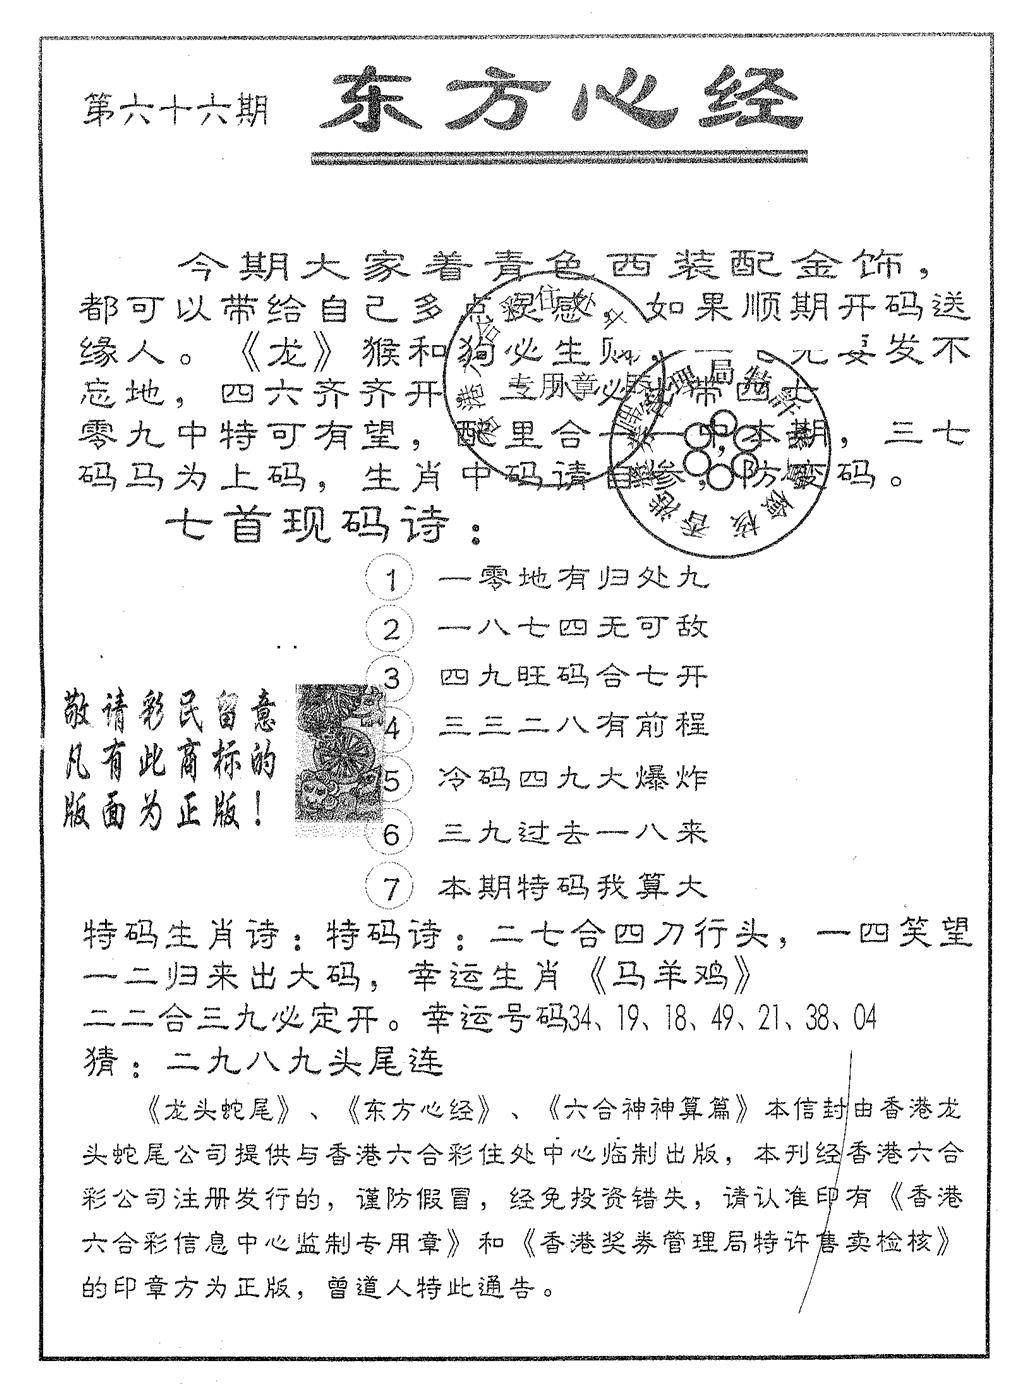 第六十六期
东方心经
今期大家着青色西装配金饰，
都可以带给自己多点灵感。如果顺期开码送
缘人。《龙》猴和狗必生财，一 无要发不
忘地，四六齐齐开 必 带四七
零九中特可有望，配里合一一中本期，三七
码马为上码，生肖中码请自参，防变码。
七首现码诗：
1 一零地有归处九
2 一八七四无可敌
3 四九旺码合七开
4 三三二八有前程
5 冷码四九大爆炸
6 三九过去一八来
7 本期特码我算大
敬请彩民留意
凡有此商标的
版面为正版！
专用章
特码生肖诗：特码诗：二七合四刀行头，一四笑望
一二归来出大码，幸运生肖《马羊鸡》
二二合三九必定开。幸运号码34、19、18、49、21、38、04
猜：二九八九头尾连
《龙头蛇尾》、《东方心经》、《六合神神算篇》本信封由香港龙
头蛇尾公司提供与香港六合彩住处中心临制出版，本刊经香港六合
彩公司注册发行的，谨防假冒，经免投资错失，请认准印有《香港
六合彩信息中心监制专用章》和《香港奖券管理局特许售卖检核》
的印章方为正版，曾道人特此通告。